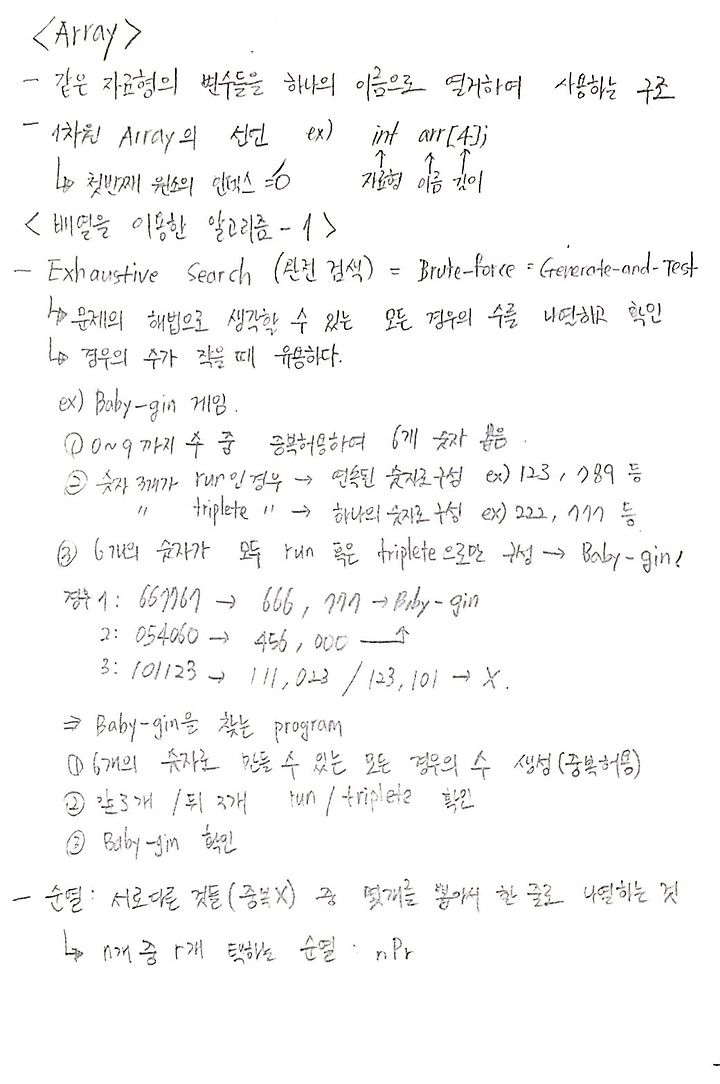 <Array>
- 같은 자료형의 변수들을 하나의 이름으로 열거하여 사용하는 구조
- 1차원 Array의 선언 ex) int arr[4];
↳ 첫번째 원소의 인덱스 = 0 자료형 이름 길이
< 배열을 이용한 알고리즘 - 1 >
- Exhaustive Search (완전 검색) = Brute-force = Generate-and-Test
↳ 문제의 해법으로 생각할 수 있는 모든 경우의 수를 나열하고 확인
↳ 경우의 수가 작을 때 유용하다.
ex) Baby-gin 게임.
① 0~9 까지 수 중 중복허용하여 6개 숫자 뽑음.
② 숫자 3개가 run인 경우 → 연속된 숫자로 구성 ex) 123, 789 등
" triplete " → 하나의 숫자로 구성 ex) 222, 777 등
③ 6개의 숫자가 모두 run 혹은 triplete으로만 구성 → Baby-gin!
경우 1: 667767 → 666, 777 → Baby-gin
2: 054060 → 456, 000 ─↑
3: 101123 → 111, 023 / 123, 101 → X.
⇒ Baby-gin을 찾는 program
① 6개의 숫자로 만들 수 있는 모든 경우의 수 생성(중복허용)
② 앞 3개 / 뒤 3개 run / triplete 확인
③ Baby-gin 확인
- 순열: 서로다른 것들(중복X) 중 몇개를 뽑아서 한 줄로 나열하는 것
↳ n개 중 r개 택하는 순열: nPr